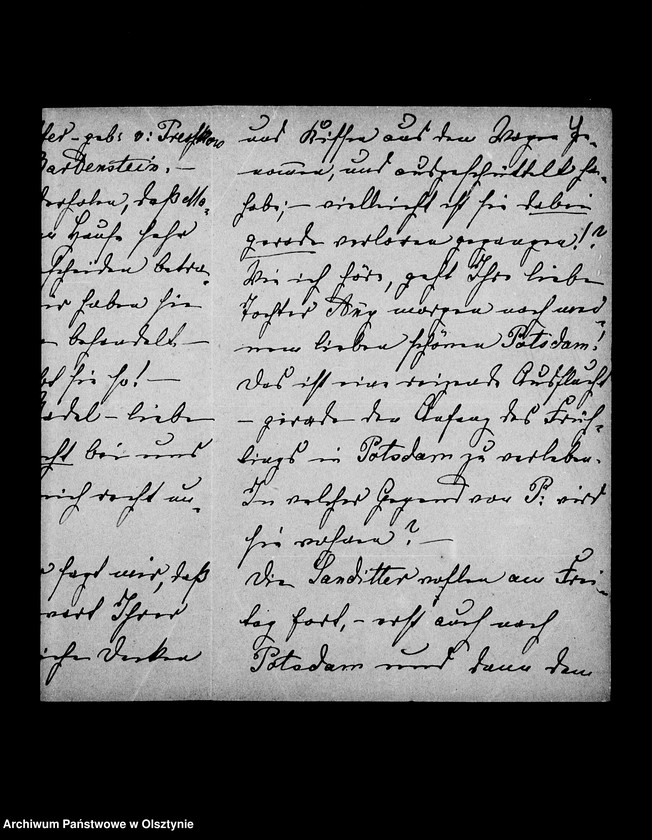 ter - geb: v: Tresckow
Bardenstein. —
derholen, daß Mo-
n Hause sehr
scheiden betra-
ir haben sie
behandelt —
sie so! —
Nadel - liebe
cht bei uns
mich recht un-
sagt mir, daß
wart Ihrer
Decken
und Kissen aus dem Wagen ge-
nommen, und ausgeschüttelt ha-
habe; — vielleicht ist sie dabei
gerade verloren gegangen!?
Wie ich höre, geht Ihre liebe
Tochter morgen nach mei-
nem lieben schönen Potsdam!
Das ist eine reizende Ausflucht
— gerade den Anfang des Früh-
lings in Potsdam zu verleben.
In welcher Gegend von P: wird
sie wohnen? —
Die Sanditter wollen am Frei-
tag fort, - erst auch nach
Potsdam und dann dem